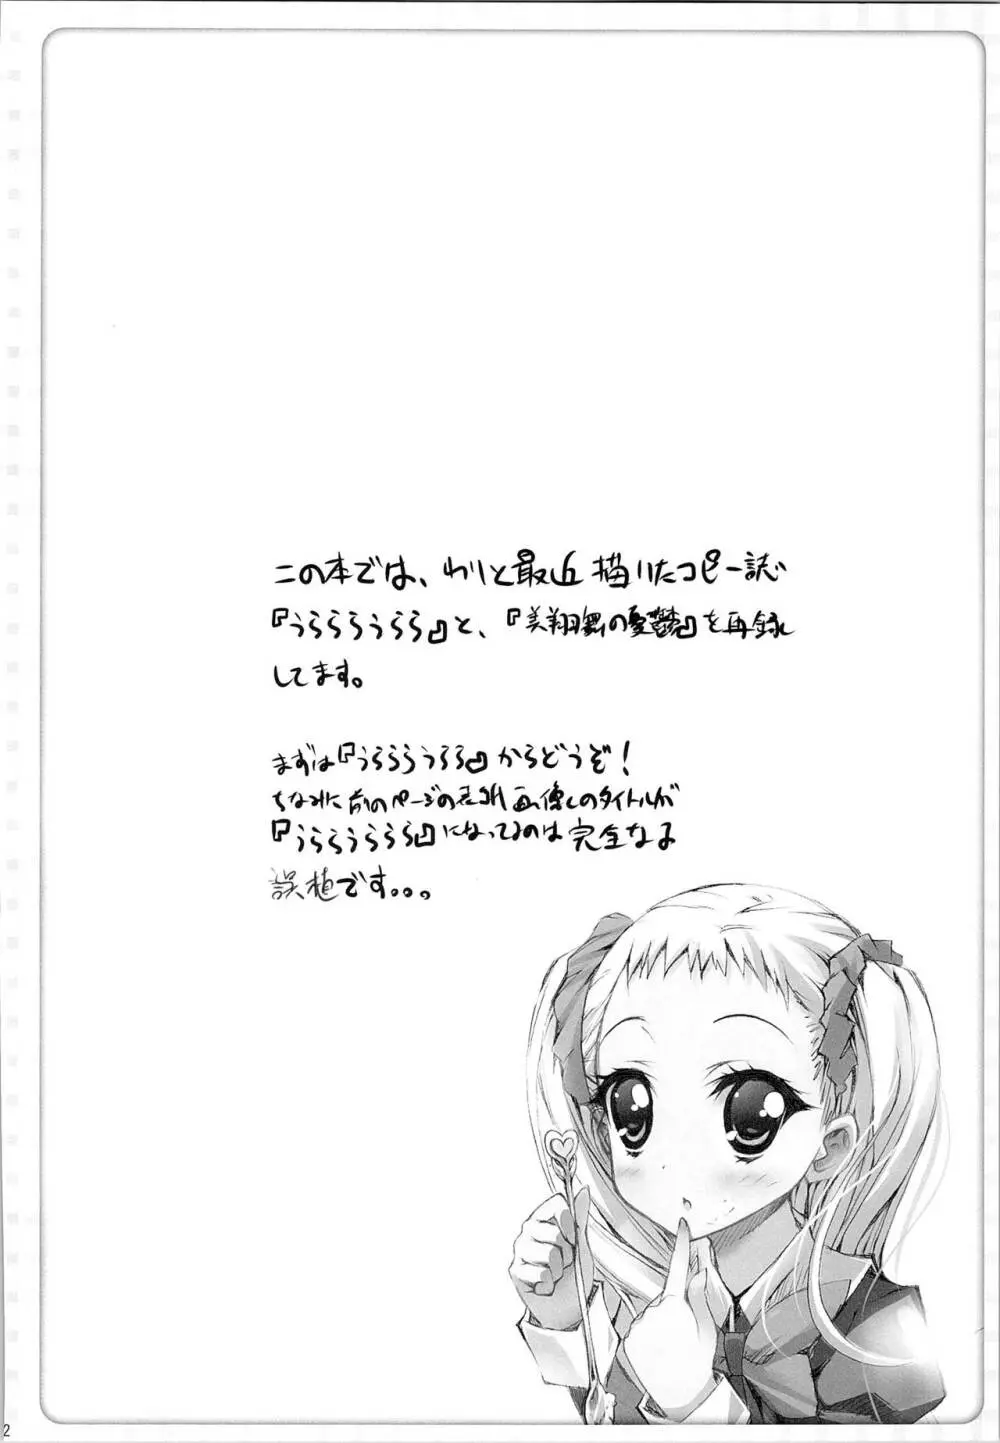 この本では、わりと最近描いたコピー誌
『うらららうらら』と、『美翔舞の憂鬱』を再録
してます。
まずは『うらららうらら』からどうぞ!
ちなみに前のページの表紙画像のタイトルが
『うららうららら』になってるのは完全なる
誤植です。。。
2